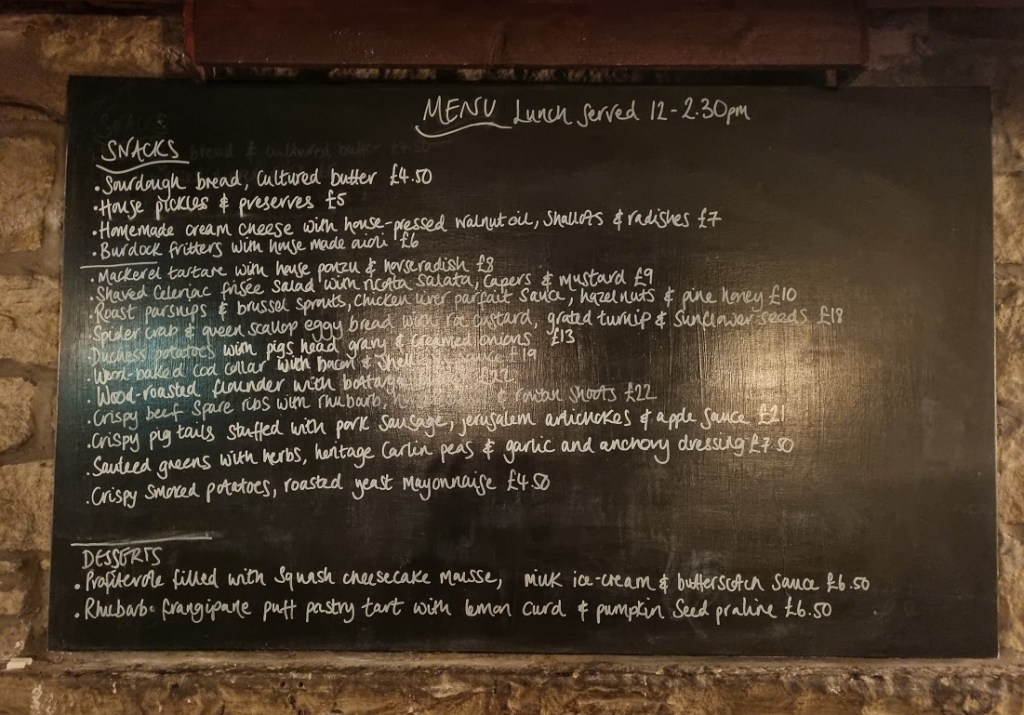 MENU Lunch Served 12-2.30pm
SNACKS
• Sourdough bread, Cultured butter £4.50
• House pickles & preserves £5
• Homemade cream cheese with house-pressed walnut oil, shallots & radishes £7
• Burdock fritters with house made aioli £6
• Mackerel tartare with house ponzu & horseradish £8
• Shaved Celeriac frisée salad with ricotta salata, capers & mustard £9
• Roast parsnips & brussel sprouts, Chicken liver parfait sauce, hazelnuts & pine honey £10
• Spider crab & queen scallop eggy bread with roe custard, grated turnip & sunflower seeds £18
• Duchess potatoes with pigs head gravy & creamed onions £13
• Wood-baked cod collar with bacon & sauce £19
• Wood-roasted flounder with £22
• Crispy beef spare ribs with rhubarb, & rowan shoots £22
• Crispy pig tails stuffed with pork sausage, jerusalem artichokes & apple sauce £21
• Sauteed greens with herbs, heritage Carlin peas & garlic and anchovy dressing £7.50
• Crispy smoked potatoes, roasted yeast mayonnaise £4.50
DESSERTS
• Profiterole filled with squash cheesecake mousse, milk ice-cream & butterscotch sauce £6.50
• Rhubarb frangipane puff pastry tart with lemon curd & pumpkin seed praline £6.50